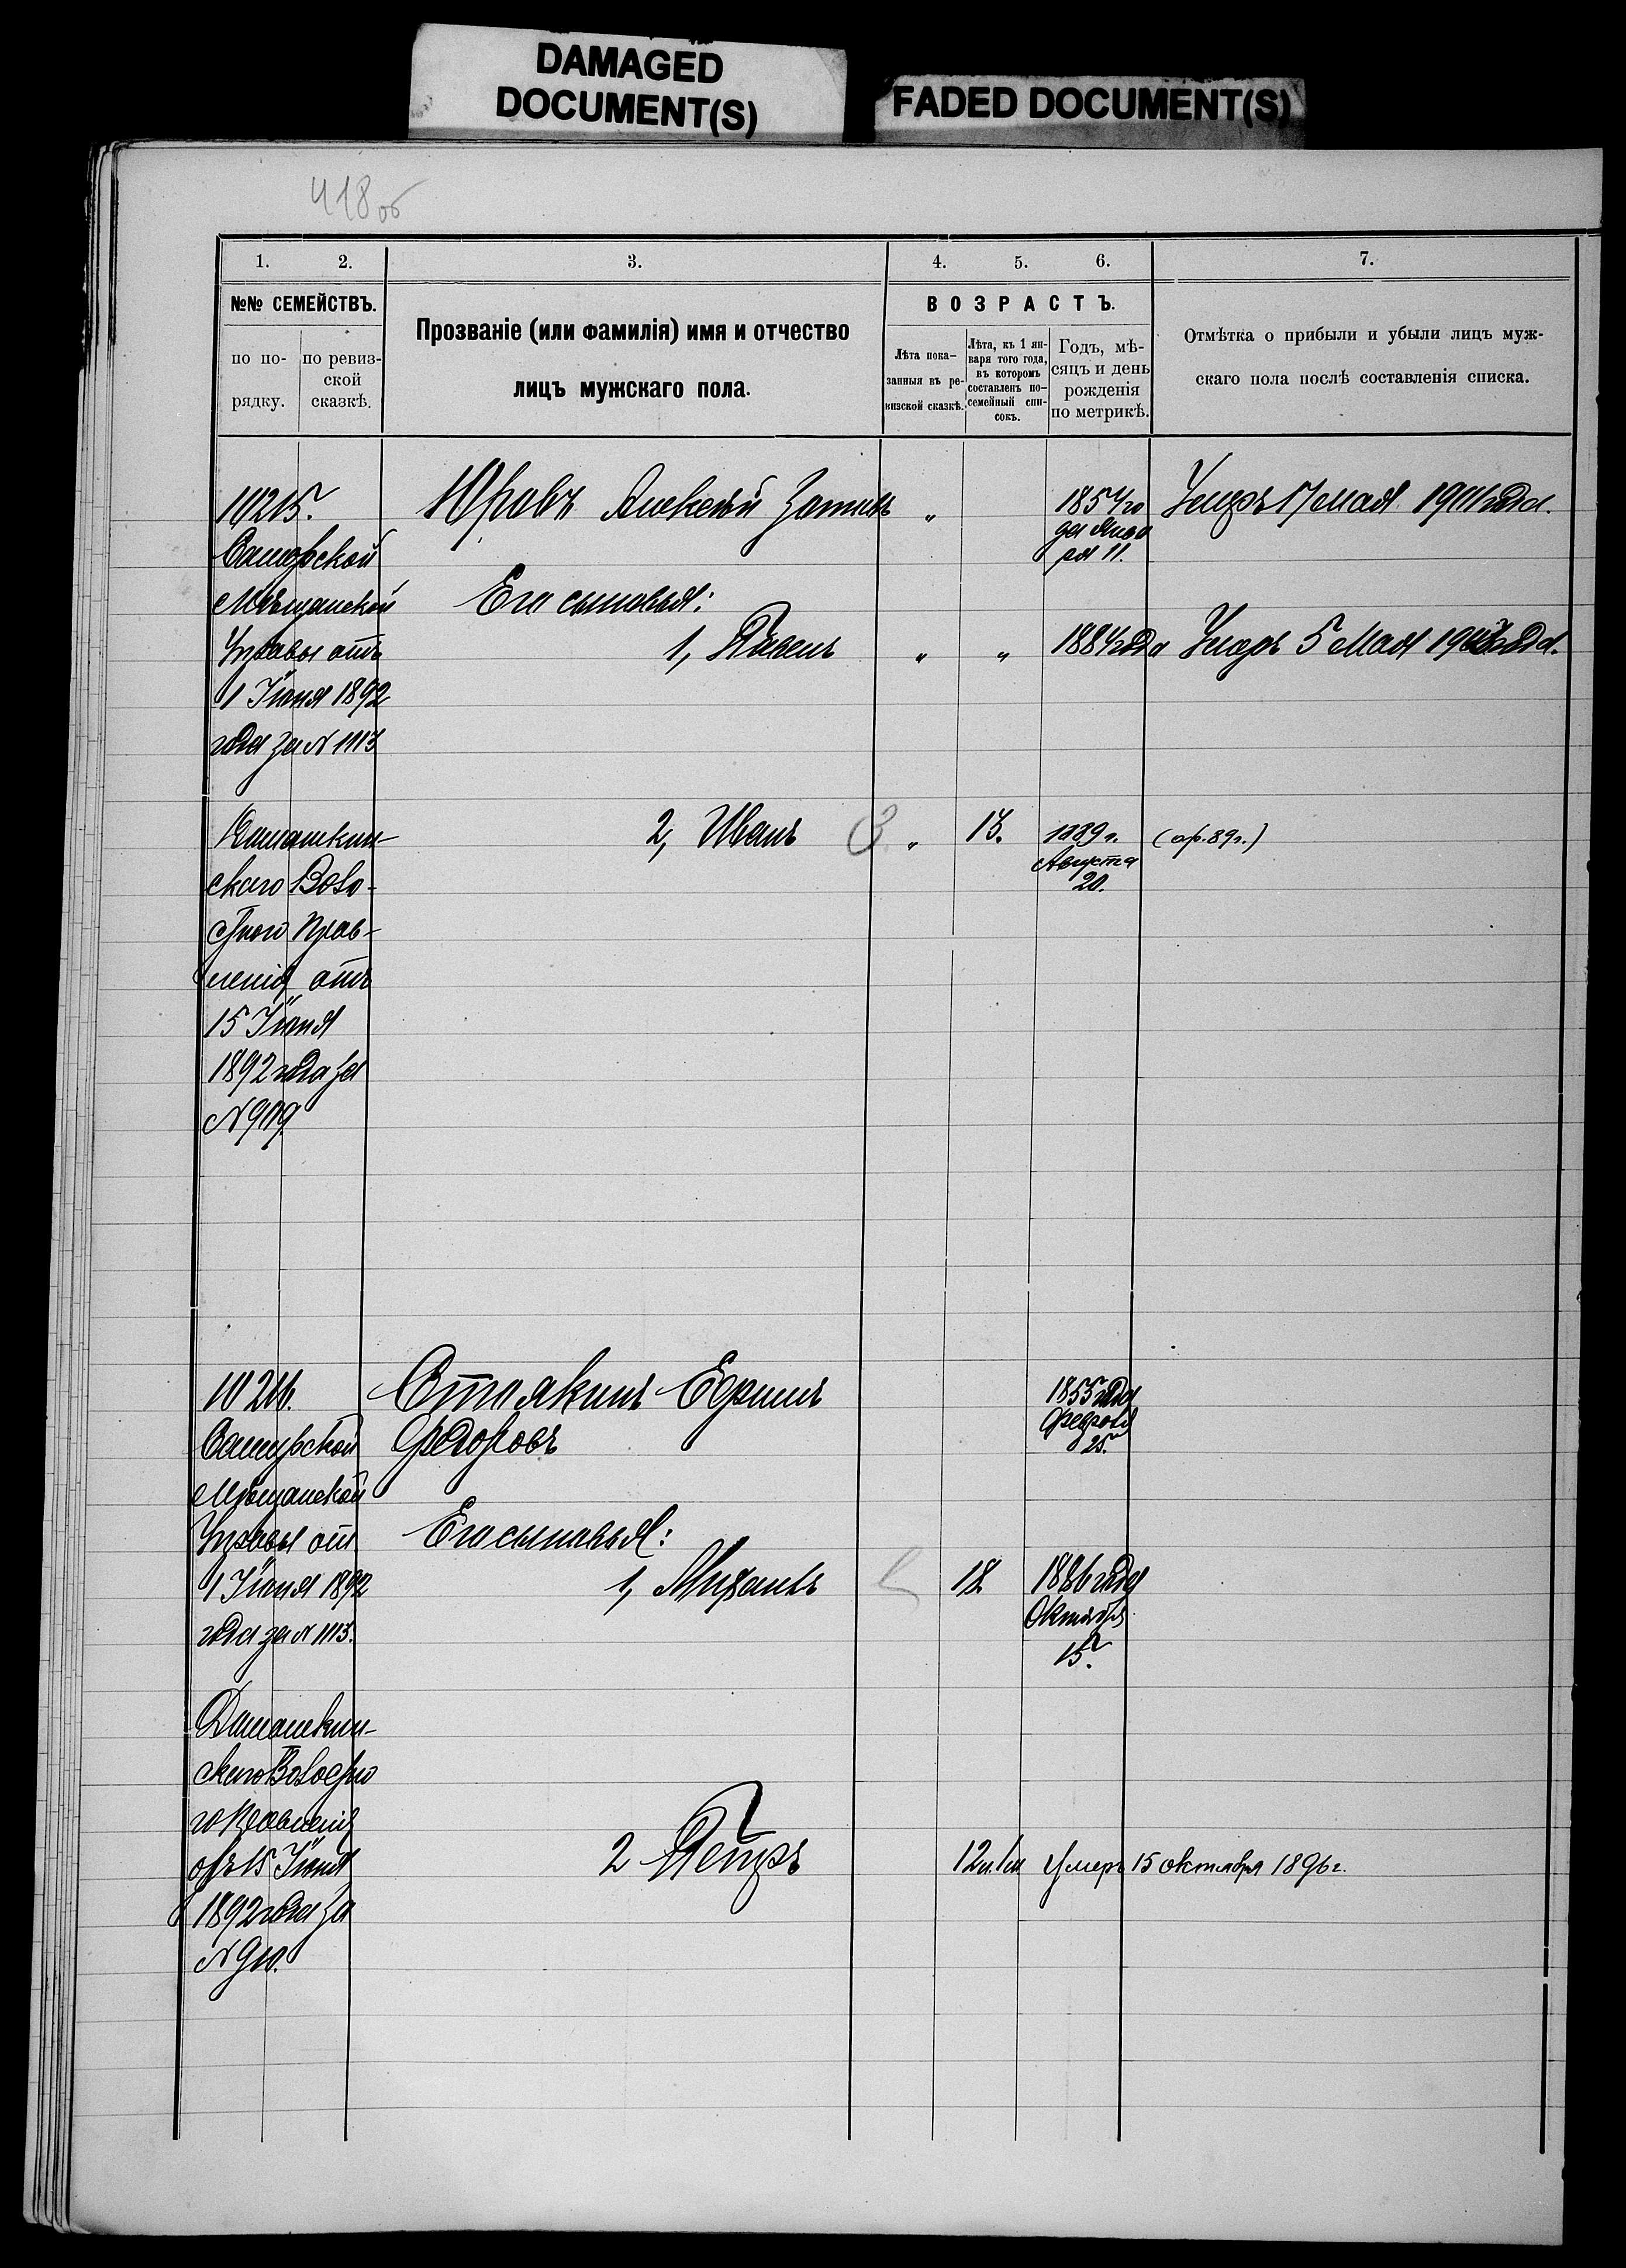 DAMAGED
DOCUMENT(S)
FADED DOCUMENT(S)
418об
1. 2. 3. 4. 5. 6. 7.
№№ СЕМЕЙСТВЪ.
по по-
рядку.
по ревиз-
ской
сказкѣ.
Прозваніе (или фамилія) имя и отчество
лицъ мужскаго пола.
ВОЗРАСТЪ.
Лѣта пока-
занныя въ ре-
визской сказкѣ.
Лѣта, къ 1 ян-
варя того года,
въ которомъ
составленъ по-
семейный спи-
сокъ.
Годъ, мѣ-
сяцъ и день
рожденія
по метрикѣ.
Отмѣтка о прибыли и убыли лицъ муж-
скаго пола послѣ составленія списка.
10215.
Самарской
Мѣщанской
Управы отъ
1 Іюня 1892
года за №
Юровъ Алексѣй
„
1854 го
да Янва
ря 11.
Умеръ 17 мая 1911 года.
Его сыновья:
1, Павелъ
„ „
1884 года
Умеръ 5 Мая
2, Иванъ
„
13.
1889 г.
Августа
20.
(ар. 89 г.)
скаго Воло-
стного Прав-
ленія отъ
15 Іюня
1892 года за
№ 909
10216.
Самарской
Мѣщанской
Управы отъ
1 Іюня 1892
года за №
Ефимъ
Федоровъ
1855 года
Февраля
25.
Его сыновья:
1, Михаилъ
18
1886 года
Октября
15.
скаго Волостно
го Правленія
отъ 15 Іюня
1892 года за
№ 910.
2 Петръ
Умеръ 15 октября 1896 г.